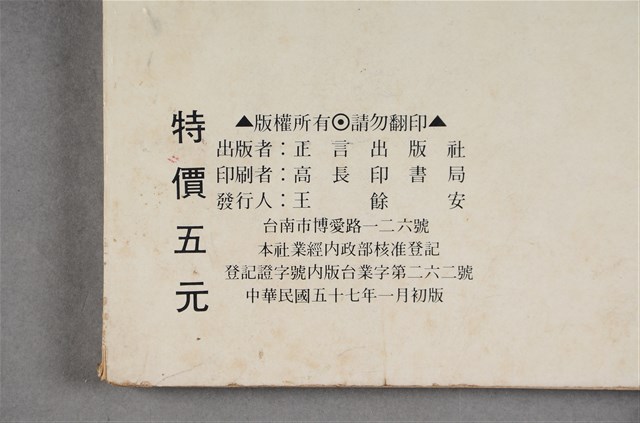 特價五元
▲版權所有⊙請勿翻印▲
出版者：正言出版社
印刷者：高長印書局
發行人：王餘安
台南市博愛路一二六號
本社業經内政部核准登記
登記證字號内版台業字第二六二號
中華民國五十七年一月初版